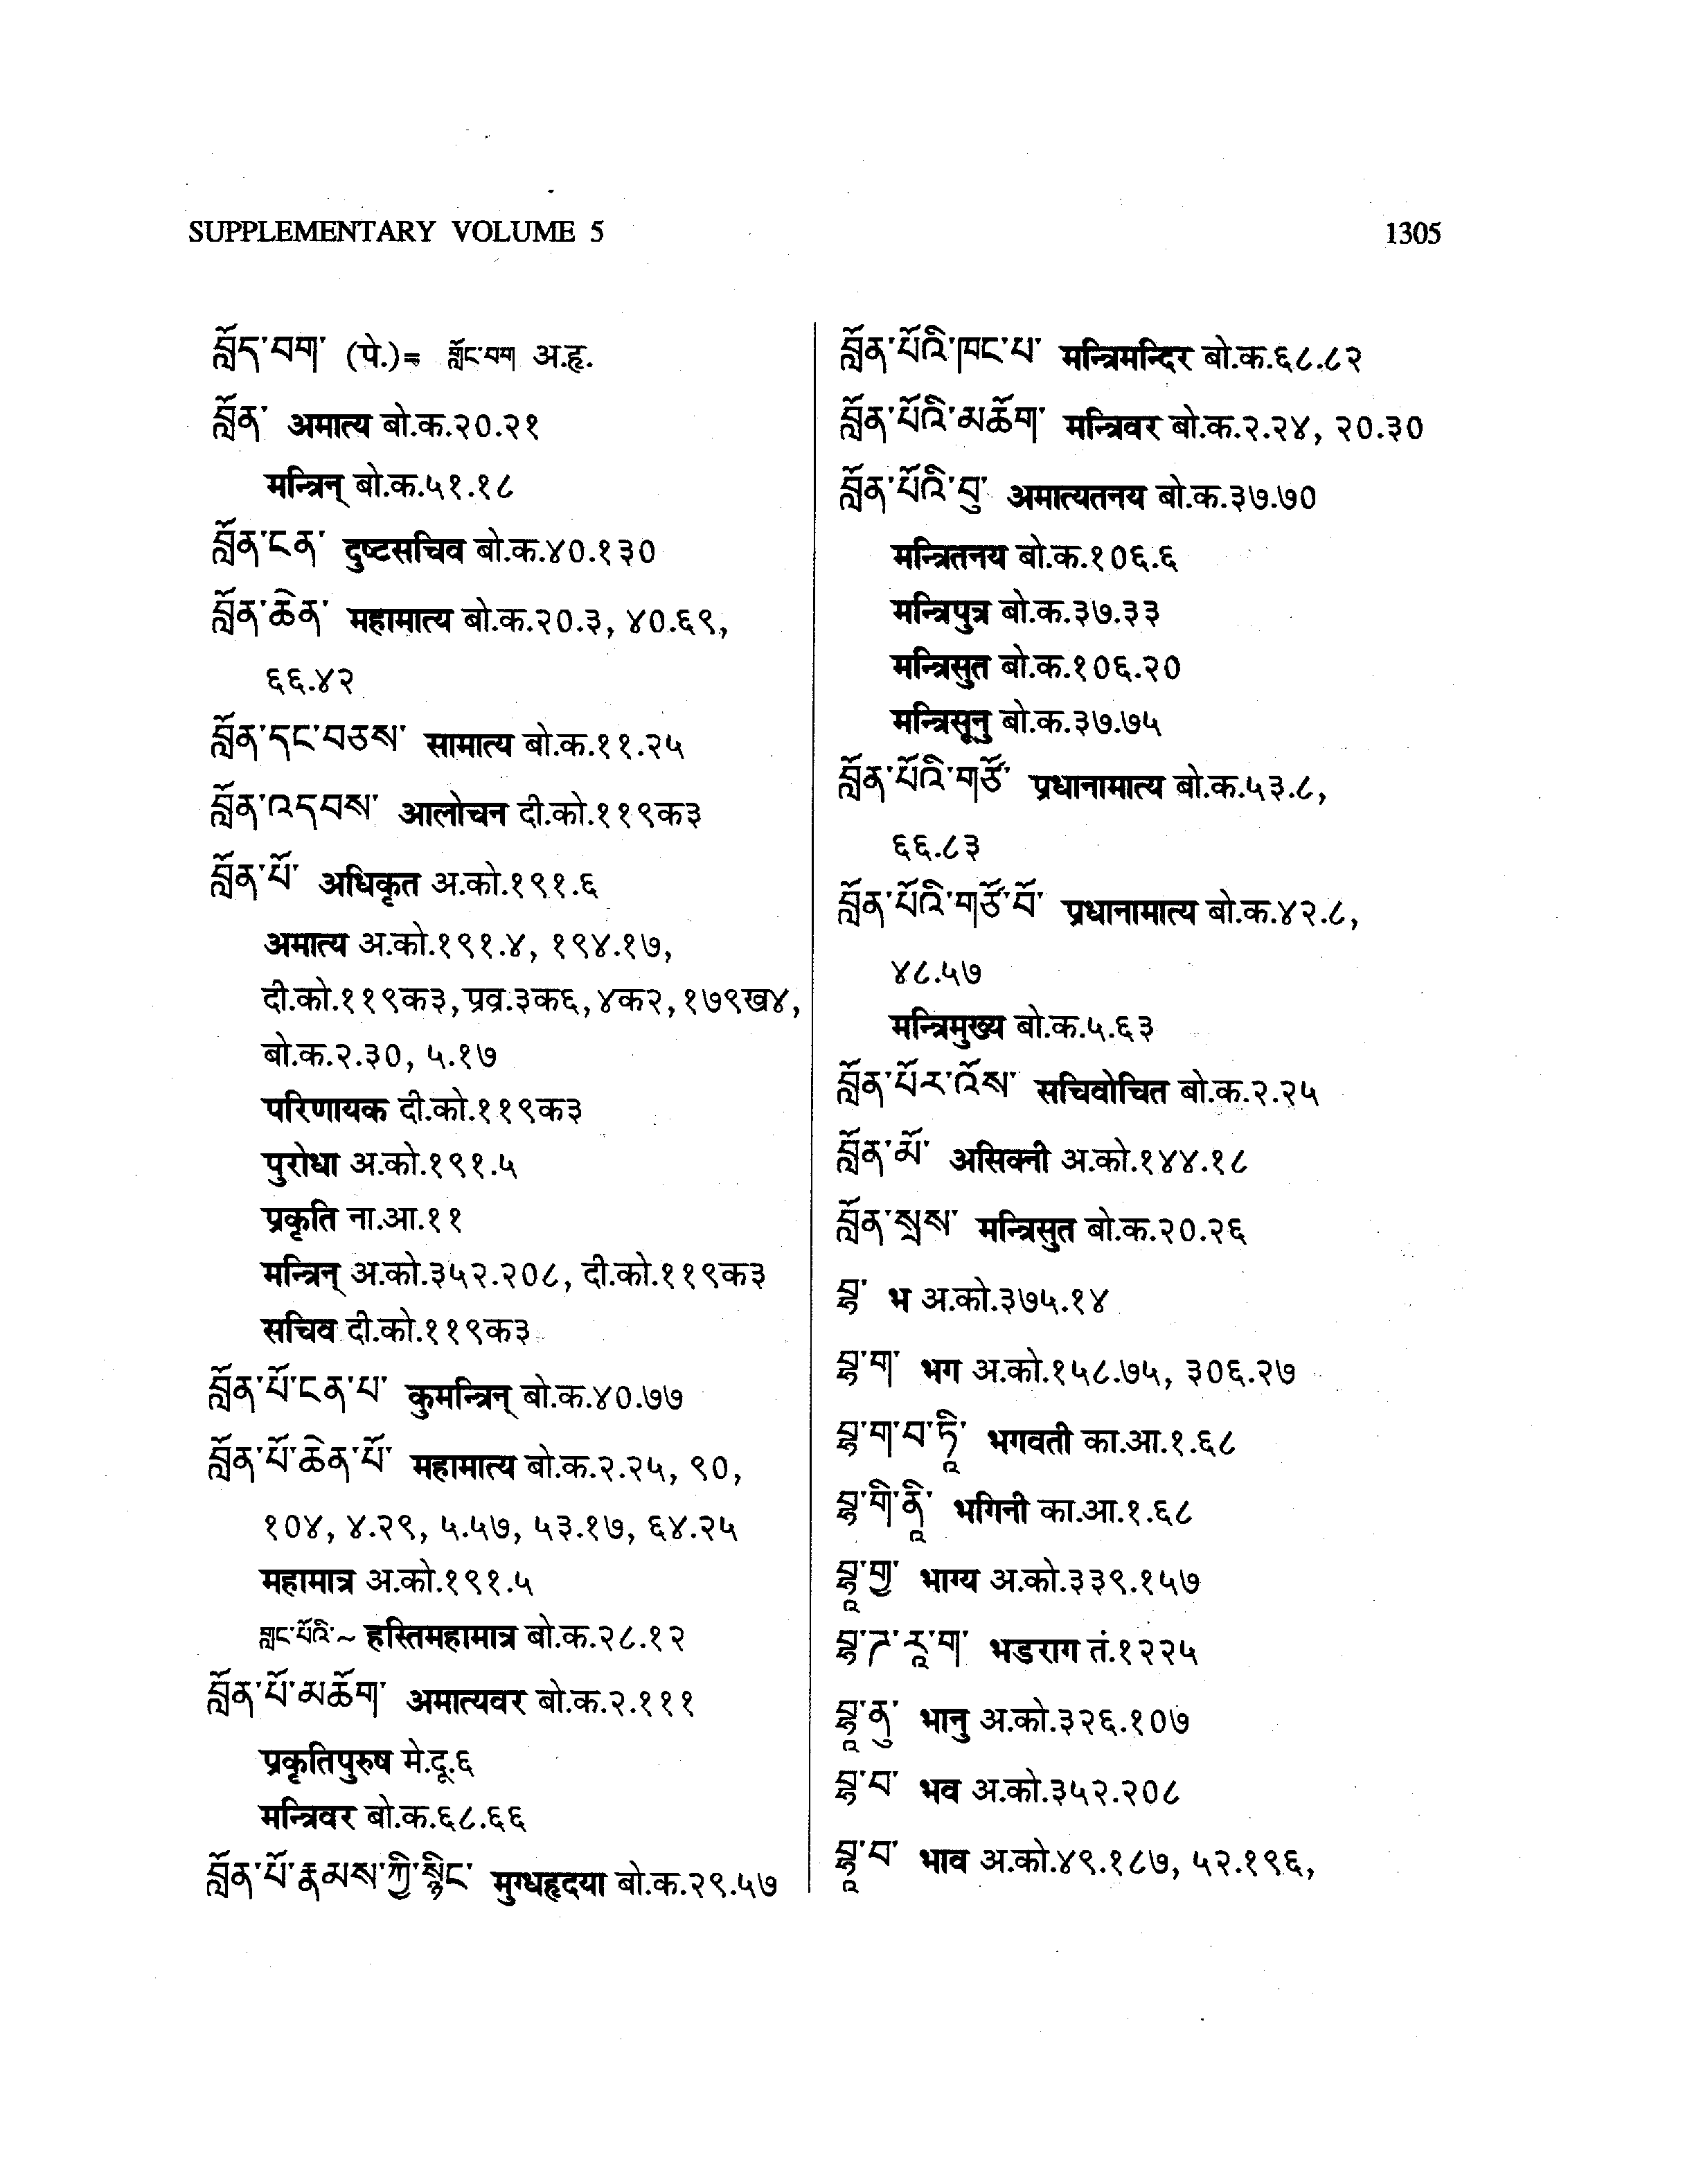 SUPPLEMENTARY VOLUME 5
1305
བློད་བག་ (पे.)= གློང་བག अ.हृ.
བློན་ अमात्य बो.क.२०.२१
मन्त्रिन् बो.क.५१.१८
བློན་ངན་ दुष्टसचिव बो.क.४०.१३०
བློན་ཆེན་ महामात्य बो.क.२०.३, ४०.६९,
६६.४२
བློན་དང་བཅས་ सामात्य बो.क.११.२५
བློན་འདབས་ आलोचन दी.को.११९क३
བློན་པོ་ अधिकृत अ.को.१९१.६
अमात्य अ.को.१९१.४, १९४.१७,
दी.को.११९क३, प्रव्र.३क६, ४क२, १७९ख४,
बो.क.२.३०, ५.१७
परिणायक दी.को.११९क३
पुरोधा अ.को.१९१.५
प्रकृति ना.आ.११
मन्त्रिन् अ.को.३५२.२०८, दी.को.११९क३
सचिव दी.को.११९क३
བློན་པོ་ངན་པ་ कुमन्त्रिन् बो.क.४०.७७
བློན་པོ་ཆེན་པོ་ महामात्य बो.क.२.२५, ९०,
१०४, ४.२९, ५.५७, ५३.१७, ६४.२५
महामात्र अ.को.१९१.५
གླང་པོའི་~ हस्तिमहामात्र बो.क.२८.१२
བློན་པོ་མཆོག་ अमात्यवर बो.क.२.१११
प्रकृतिपुरुष मे.दू.६
मन्त्रिवर बो.क.६८.६६
བློན་པོ་རྣམས་ཀྱི་སྙིང་ मुग्धहृदया बो.क.२९.५७
བློན་པོའི་ཁང་པ་ मन्त्रिमन्दिर बो.क.६८.८२
བློན་པོའི་མཆོག་ मन्त्रिवर बो.क.२.२४, २०.३०
བློན་པོའི་བུ་ अमात्यतनय बो.क.३७.७०
मन्त्रितनय बो.क.१०६.६
मन्त्रिपुत्र बो.क.३७.३३
मन्त्रिसुत बो.क.१०६.२०
मन्त्रिसूनु बो.क.३७.७५
བློན་པོའི་གཙོ་ प्रधानामात्य बो.क.५३.८,
६६.८३
བློན་པོའི་གཙོ་བོ་ प्रधानामात्य बो.क.४२.८,
४८.५७
मन्त्रिमुख्य बो.क.५.६३
བློན་པོར་འོས་ सचिवोचित बो.क.२.२५
བློན་མོ་ असिक्नी अ.को.१४४.१८
བློན་སྲས་ मन्त्रिसुत बो.क.२०.२६
བྷ་ भ अ.को.३७५.१४
བྷ་ག་ भग अ.को.१५८.७५, ३०६.२७
བྷ་ག་བ་ཏཱི་ भगवती का.आ.१.६८
བྷ་གི་ནཱི་ भगिनी का.आ.१.६८
བྷཱ་གྱ་ भाग्य अ.को.३३९.१५७
བྷ་ཌ་རཱ་ག་ भडराग तं.१२२५
བྷཱ་ནུ་ भानु अ.को.३२६.१०७
བྷ་བ་ भव अ.को.३५२.२०८
བྷཱ་བ་ भाव अ.को.४९.१८७, ५२.१९६,